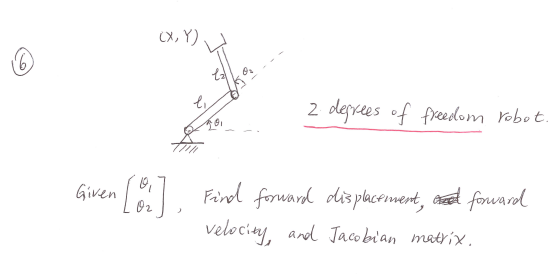 ⑥
(X, Y)
l₂
θ₂
l₁
θ₁
2 degrees of freedom robot.
Given [θ₁ θ₂], Find forward displacement, forward
velocity, and Jacobian matrix.